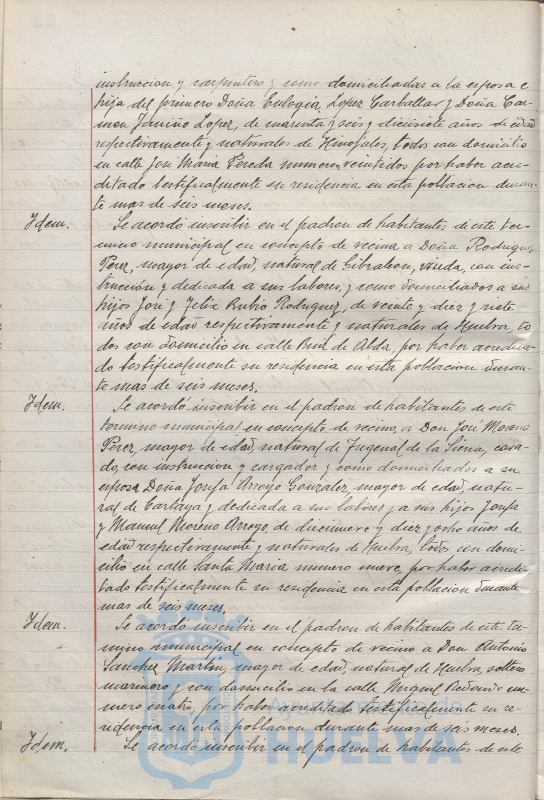 instruccion y carpintero y como domiciliadas a la esposa e
hija del primero Doña Eulogia Lopez Carballar y Doña Car-
men Janiño Lopez, de cuarenta y seis y diecisiete años de edad
respectivamente y naturales de Hinojales, todos con domicilio
en calle José Maria Pereda numero veintidos por haber acre-
ditado testificalmente su residencia en esta poblacion duran-
te mas de seis meses.
Idem. Se acordó inscribir en el padron de habitantes de este ter-
mino municipal en concepto de vecina a Doña Rodriguez
Perez, mayor de edad, natural de Gibraleon, viuda, con ins-
trucción y dedicada a sus labores, y como domiciliados a sus
hijos José y Felix Rubio Rodriguez, de veinte y diez y siete
años de edad respectivamente y naturales de Huelva to-
dos con domicilio en calle Ruiz de Alda, por haber acredita-
do testificalmente su residencia en esta poblacion duran-
te mas de seis meses.
Idem. Se acordó inscribir en el padron de habitantes de este
termino municipal en concepto de vecino a Don José Moreno
Perez, mayor de edad, natural de Fregenal de la Sierra, casa-
do, con instruccion y cargador y como domiciliados a su
esposa Doña Josefa Arroyo Gonzalez, mayor de edad, natu-
ral de Cartaya y dedicada a sus labores y a sus hijos Josefa
y Manuel Moreno Arroyo, de diecinueve y diez y ocho años de
edad respectivamente y naturales de Huelva, todos con domi-
cilio en calle Santa Maria numero nueve, por haber acredi-
tado testificalmente su residencia en esta poblacion durante
mas de seis meses.
Idem. Se acordó inscribir en el padron de habitantes de este ter-
mino municipal en concepto de vecino a Don Antonio
Sanchez Martin, mayor de edad, natural de Huelva, soltero
marinero y con domicilio en la calle Miguel Redondo nu-
mero cuatro, por haber acreditado testificalmente su re-
sidencia en esta poblacion durante mas de seis meses.
Idem. Se acordó inscribir en el padron de habitantes de este
HUELVA